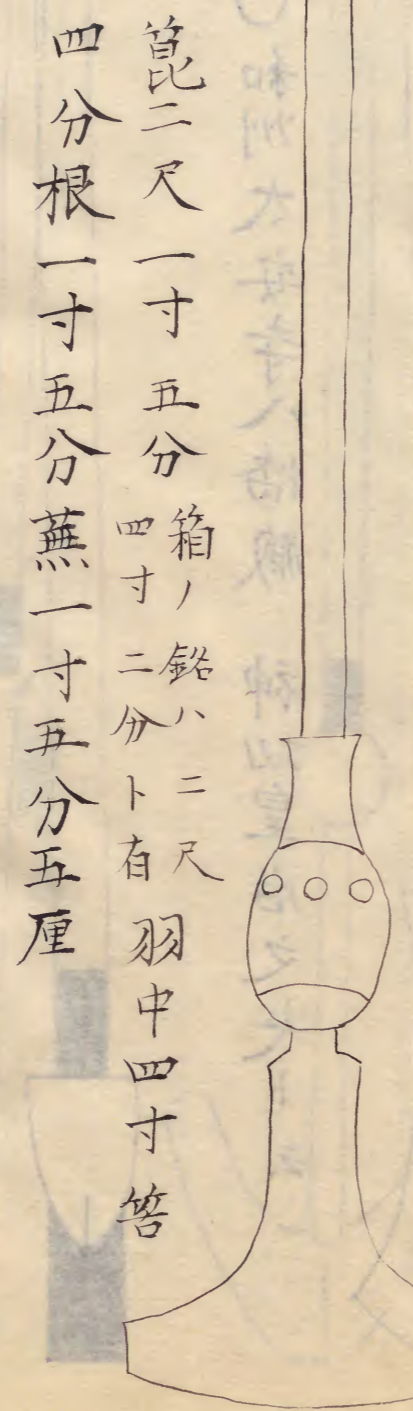 箟二尺一寸五分
箱ノ銘ハ二尺
四寸二分ト有
羽中四寸筈
四分根一寸五分蕪一寸五分五厘